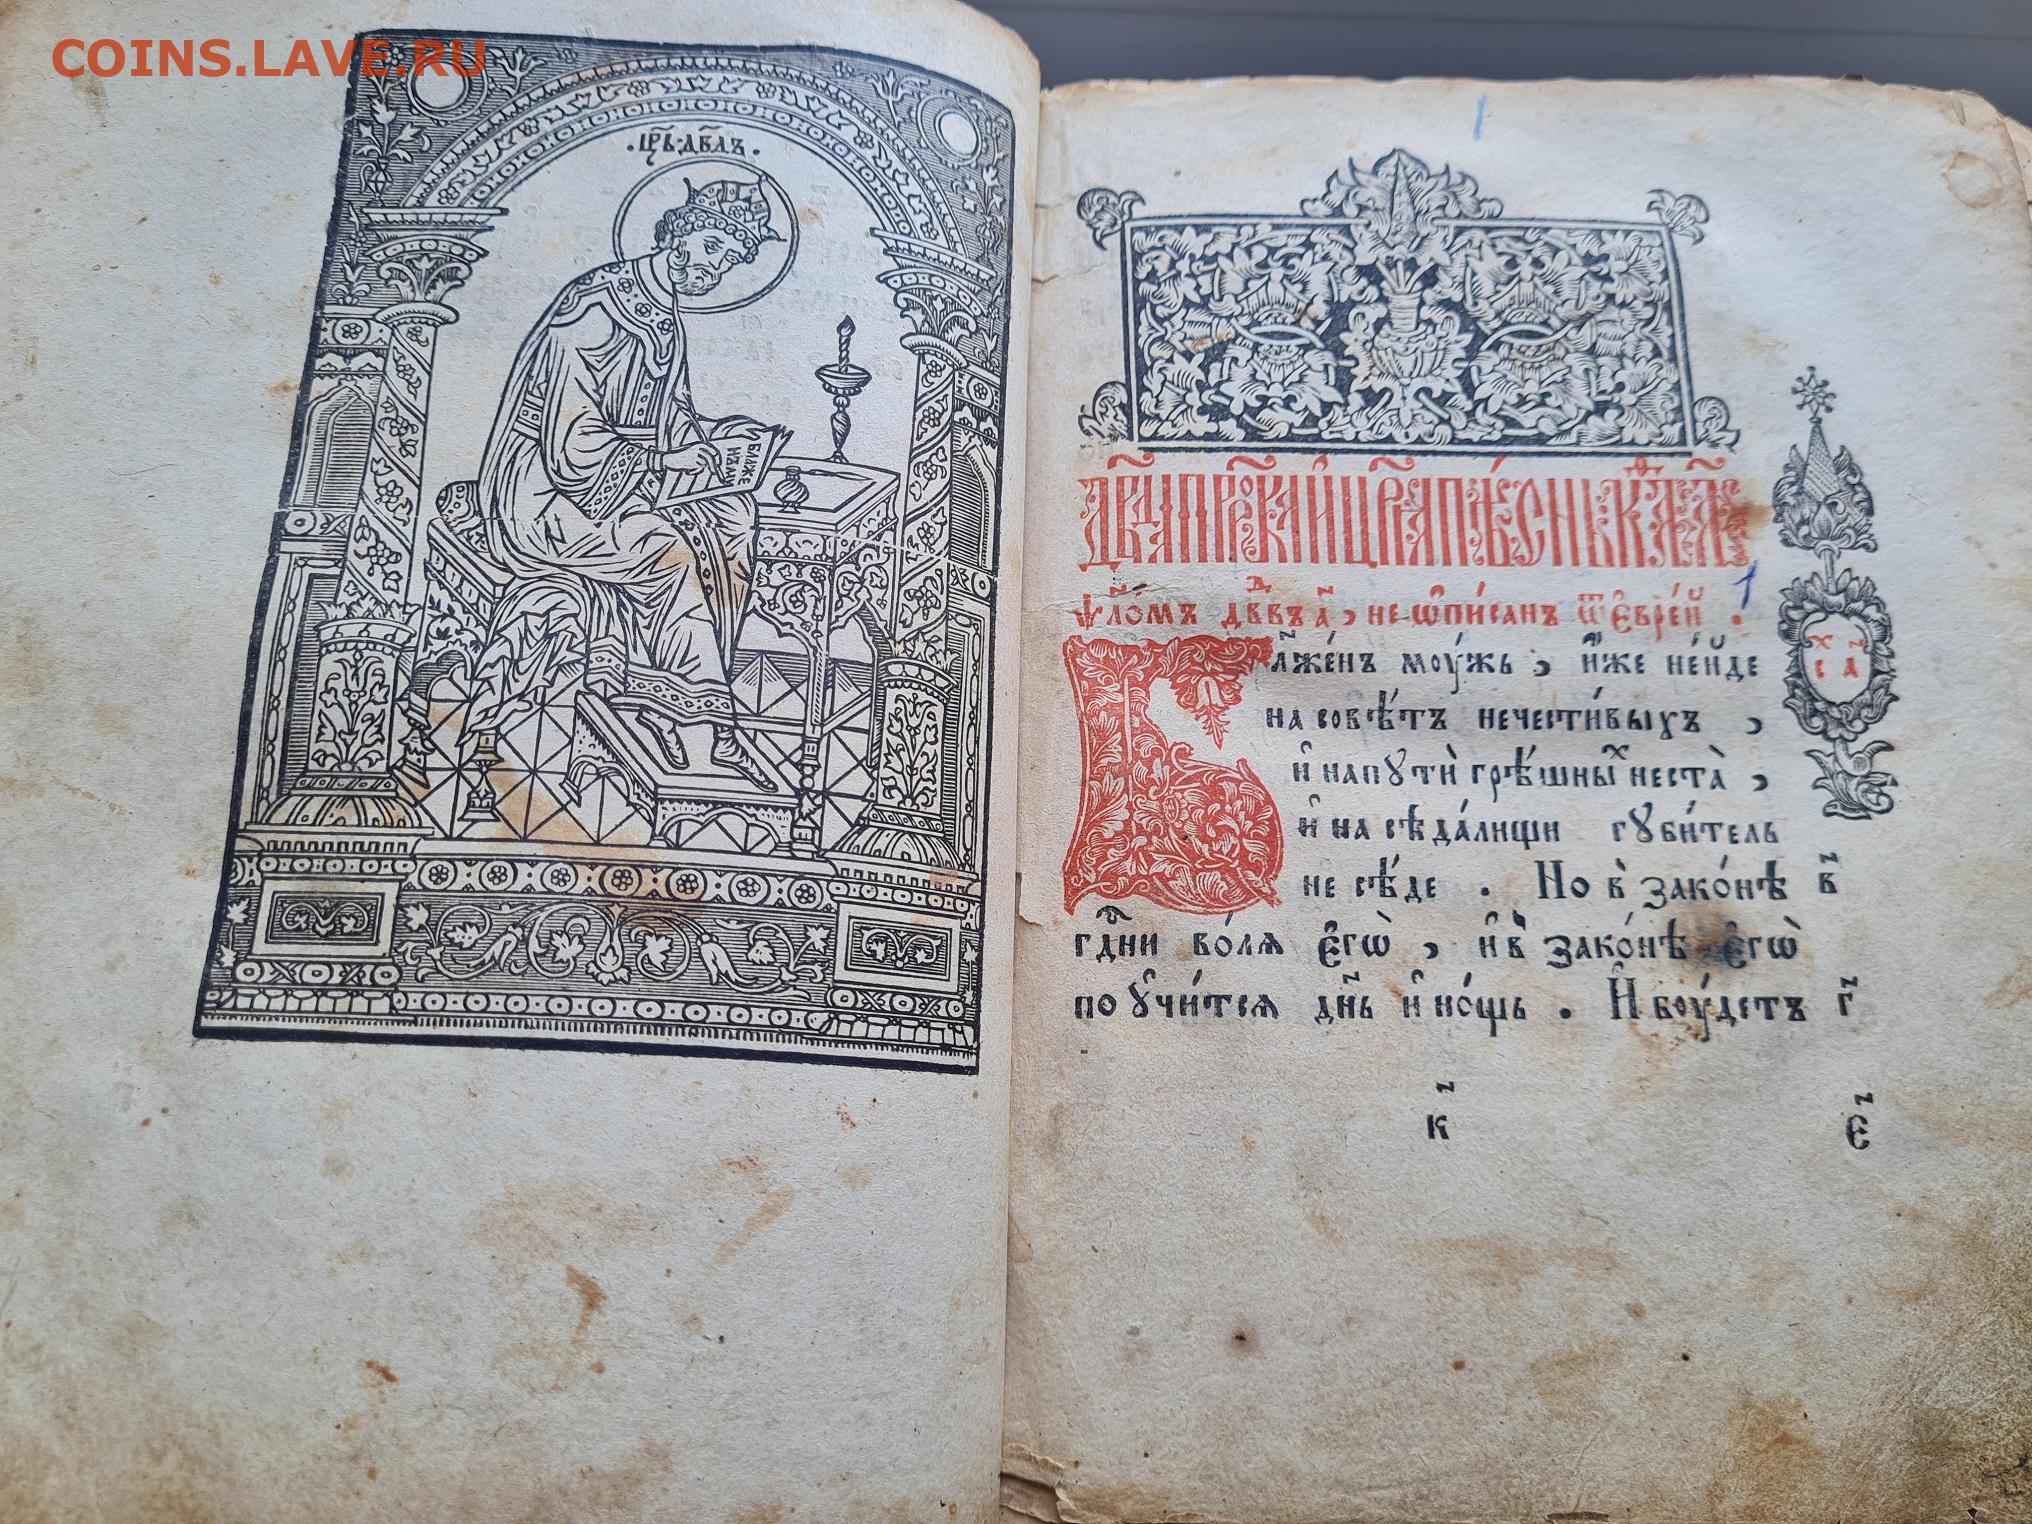 COINS.LAVE.RU
•цр҃ь•дв҃дъ•
БЛАЖЕ
НЪМУ
1
Дв҃да прⷪ҇рка и҆ цр҃ѧ пѣ́снь. каⷴ҇ а҃
ѱл҃о́мъ дв҃дⷣвъ а҃, не ѡ҆пи́санъ ѿ є҆врє́й .
1
Бл҃же́нъ моу́жь , и҆́же неи́де
х҃
с҃ а҃
на совѣ́тъ нечести́выхъ ,
и҆ напутѝ грѣ́шныⷯ неста̀ ,
и҆ на сѣда́лищи губи́тель
не сѣ́де . Но в̾ зако́нѣ в҃
гдⷭ҇ни во́лѧ є҆гѡ̀ , и҆ в̾ зако́нѣ є҆гѡ̀
поꙋчи́тсѧ дн҃ь и҆ но́щь . И҆ боу́детъ г҃
к҃ є҃